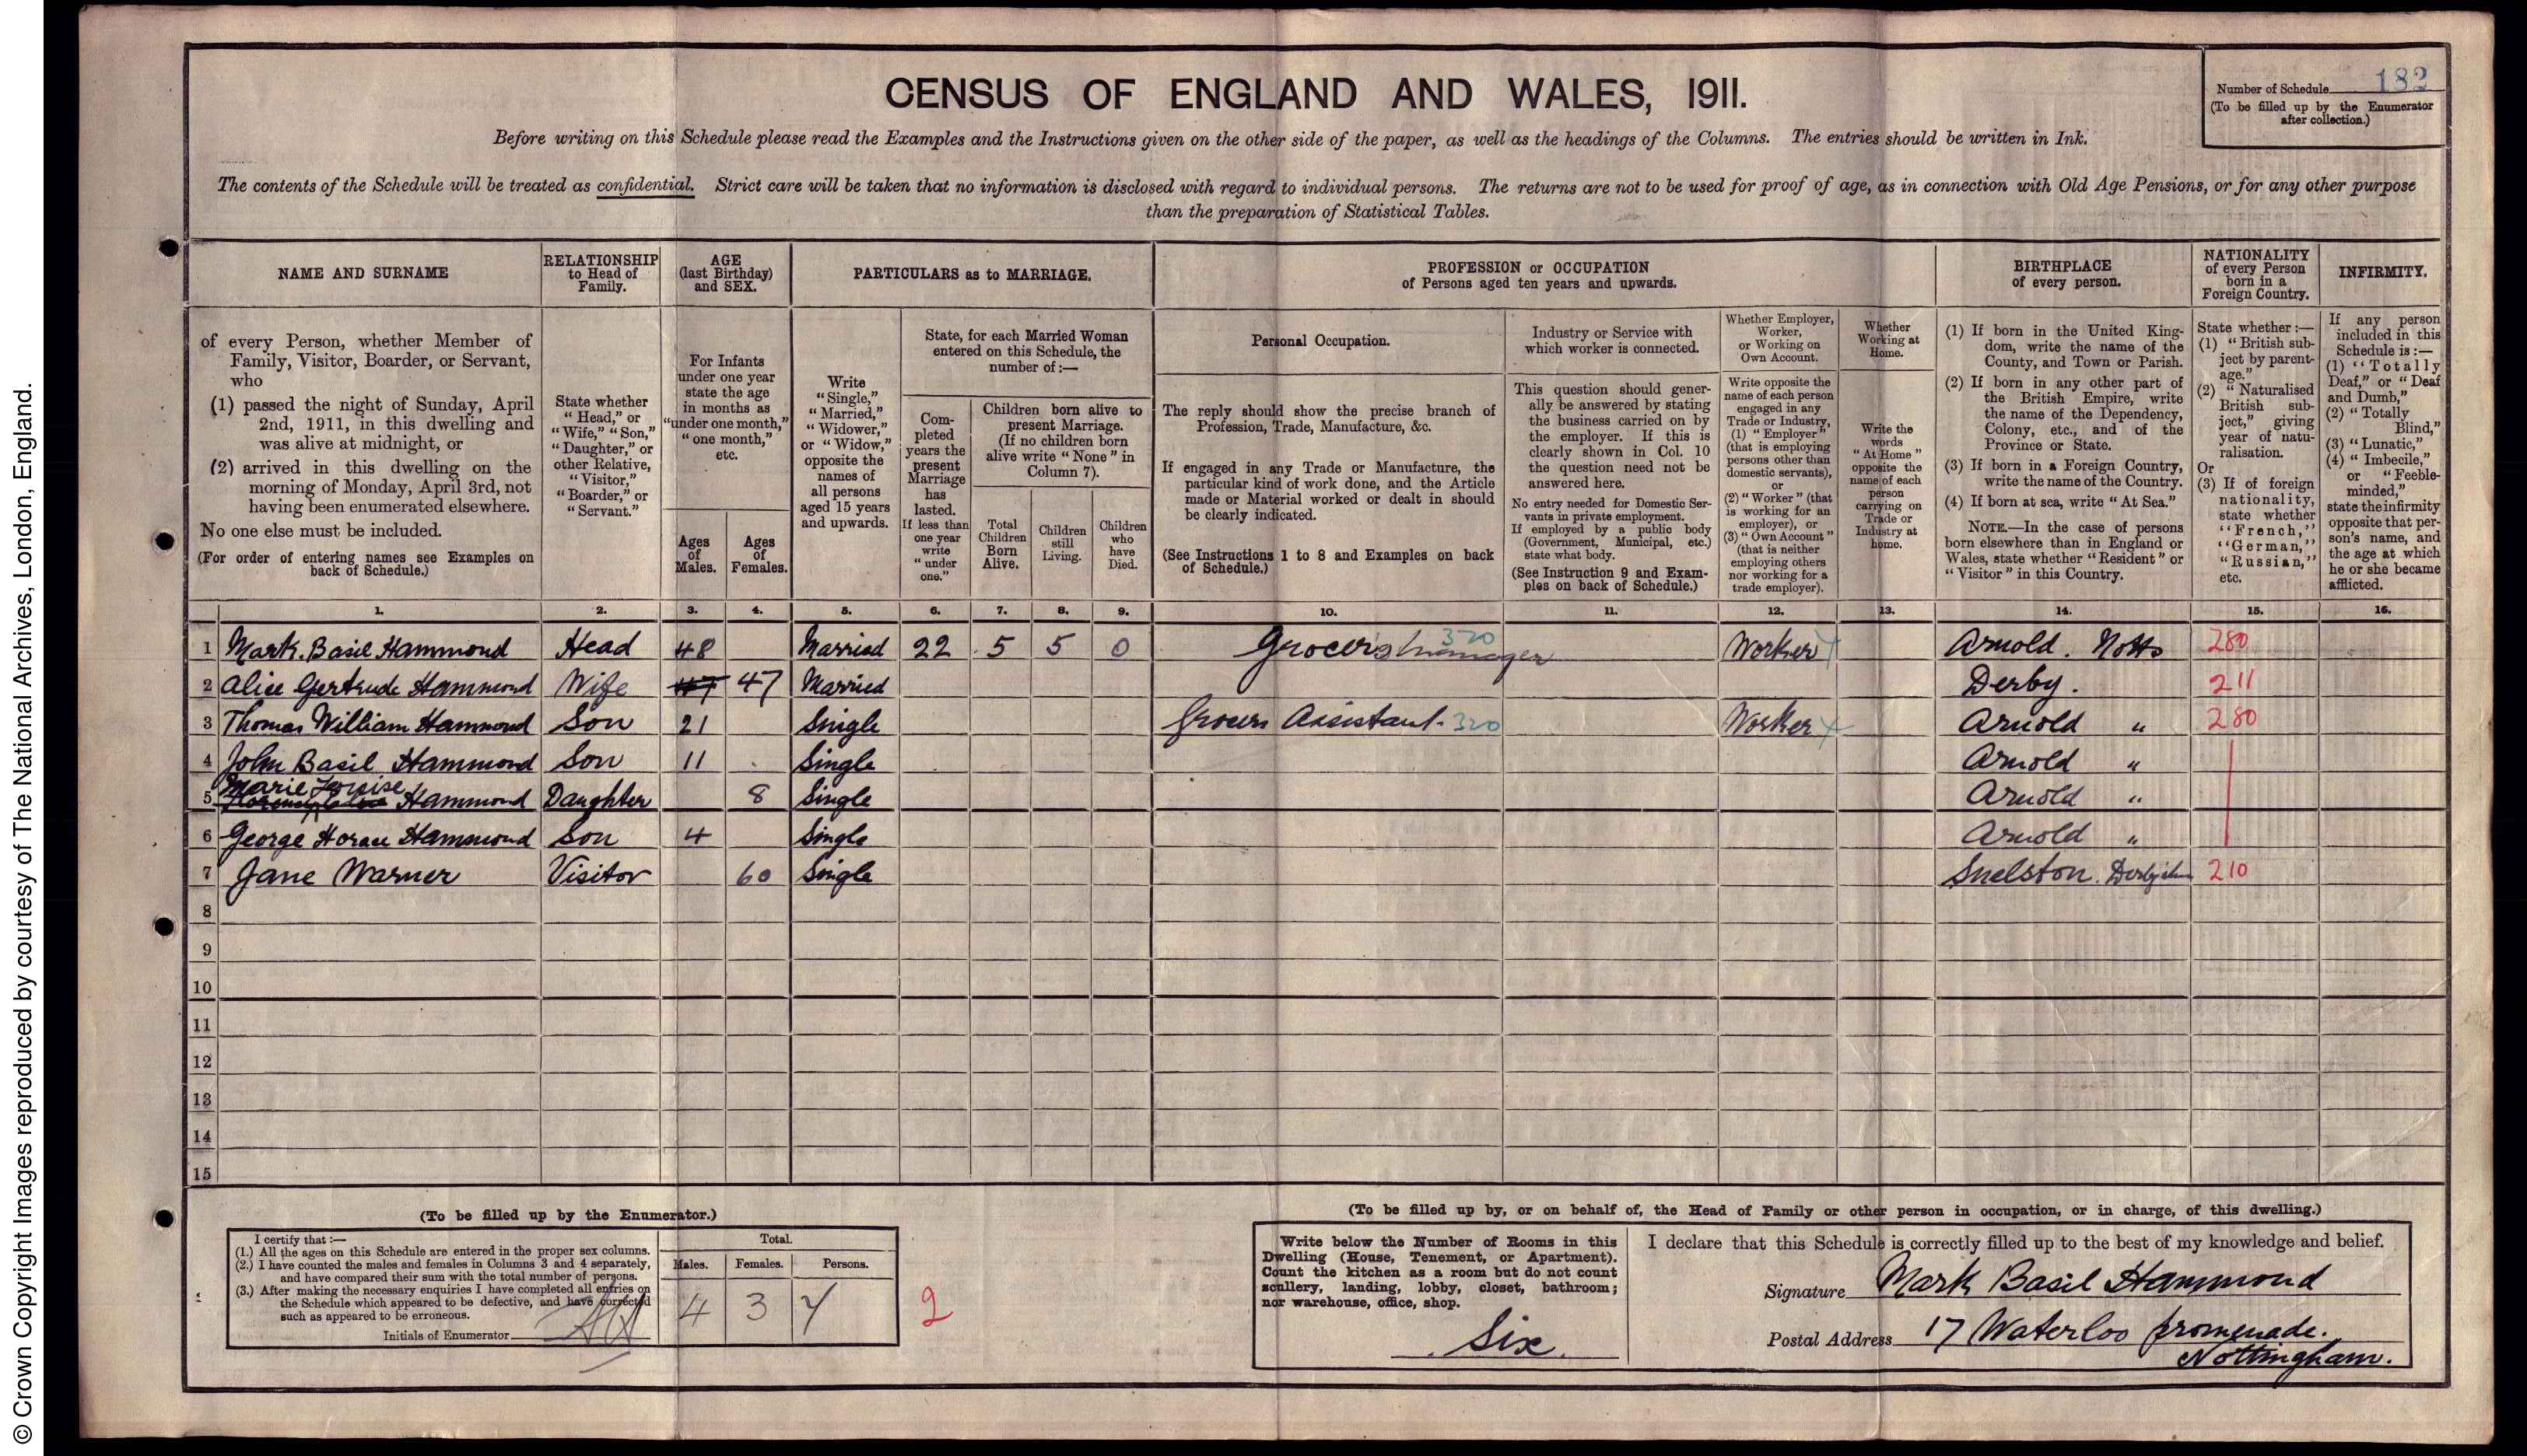 © Crown Copyright Images reproduced by courtesy of The National Archives, London, England.
CENSUS OF ENGLAND AND WALES, 1911.
Number of Schedule 182
(To be filled up by the Enumerator
after collection.)
Before writing on this Schedule please read the Examples and the Instructions given on the other side of the paper, as well as the headings of the Columns. The entries should be written in Ink.
The contents of the Schedule will be treated as confidential. Strict care will be taken that no information is disclosed with regard to individual persons. The returns are not to be used for proof of age, as in connection with Old Age Pensions, or for any other purpose
than the preparation of Statistical Tables.
NAME AND SURNAME
of every Person, whether Member of
Family, Visitor, Boarder, or Servant,
who
(1) passed the night of Sunday, April
2nd, 1911, in this dwelling and
was alive at midnight, or
(2) arrived in this dwelling on the
morning of Monday, April 3rd, not
having been enumerated elsewhere.
No one else must be included.
(For order of entering names see Examples on
back of Schedule.)
RELATIONSHIP
to Head of
Family.
State whether
"Head," or
"Wife," "Son,"
"Daughter," or
other Relative,
"Visitor,"
"Boarder," or
"Servant."
AGE
(last Birthday)
and SEX.
For Infants
under one year
state the age
in months as
"under one month,"
"one month,"
etc.
Ages
of
Males.
Ages
of
Females.
PARTICULARS as to MARRIAGE.
Write
"Single,"
"Married,"
"Widower,"
or "Widow,"
opposite the
names of
all persons
aged 15 years
and upwards.
State, for each Married Woman
entered on this Schedule, the
number of :—
Com-
pleted
years the
present
Marriage
has
lasted.
If less than
one year
write
"under
one."
Children born alive to
present Marriage.
(If no children born
alive write "None" in
Column 7).
Total
Children
Born
Alive.
Children
still
Living.
Children
who
have
Died.
PROFESSION or OCCUPATION
of Persons aged ten years and upwards.
Personal Occupation.
The reply should show the precise branch of
Profession, Trade, Manufacture, &c.
If engaged in any Trade or Manufacture, the
particular kind of work done, and the Article
made or Material worked or dealt in should
be clearly indicated.
(See Instructions 1 to 8 and Examples on back
of Schedule.)
Industry or Service with
which worker is connected.
This question should gener-
ally be answered by stating
the business carried on by
the employer. If this is
clearly shown in Col. 10
the question need not be
answered here.
No entry needed for Domestic Ser-
vants in private employment.
If employed by a public body
(Government, Municipal, etc.)
state what body.
(See Instruction 9 and Exam-
ples on back of Schedule.)
Whether Employer,
Worker,
or Working on
Own Account.
Write opposite the
name of each person
engaged in any
Trade or Industry,
(1) "Employer"
(that is employing
persons other than
domestic servants),
or
(2) "Worker" (that
is working for an
employer), or
(3) "Own Account"
(that is neither
employing others
nor working for a
trade employer).
Whether
Working at
Home.
Write the
words
"At Home"
opposite the
name of each
person
carrying on
Trade or
Industry at
home.
BIRTHPLACE
of every person.
(1) If born in the United King-
dom, write the name of the
County, and Town or Parish.
(2) If born in any other part of
the British Empire, write
the name of the Dependency,
Colony, etc., and of the
Province or State.
(3) If born in a Foreign Country,
write the name of the Country.
(4) If born at sea, write "At Sea."
NOTE.—In the case of persons
born elsewhere than in England or
Wales, state whether "Resident" or
"Visitor" in this Country.
NATIONALITY
of every Person
born in a
Foreign Country.
State whether :—
(1) "British sub-
ject by parent-
age."
(2) "Naturalised
British sub-
ject," giving
year of natu-
ralisation.
Or
(3) If of foreign
nationality,
state whether
"French,"
"German,"
"Russian,"
etc.
INFIRMITY.
If any person
included in this
Schedule is :—
(1) "Totally
Deaf," or "Deaf
and Dumb,"
(2) "Totally
Blind,"
(3) "Lunatic,"
(4) "Imbecile,"
or "Feeble-
minded,"
state the infirmity
opposite that per-
son's name, and
the age at which
he or she became
afflicted.
1. 2. 3. 4. 5. 6. 7. 8. 9. 10. 11. 12. 13. 14. 15. 16.
1 Mark. Basil Hammond Head 48 Married 22 5 5 0 Grocer's manager 320 Worker Arnold. Notts 280
2 Alice Gertrude Hammond Wife 47 47 Married Derby. 211
3 Thomas William Hammond Son 21 Single Grocers Assistant 320 Worker Arnold " 280
4 John Basil Hammond Son 11 Single Arnold "
5 Marie Louise Hammond Daughter 8 Single Arnold "
6 George Horace Hammond Son 4 Single Arnold "
7 Jane Warner Visitor 60 Single Snelston. Derbyshire 210
8
9
10
11
12
13
14
15
(To be filled up by the Enumerator.)
I certify that :—
(1.) All the ages on this Schedule are entered in the proper sex columns.
(2.) I have counted the males and females in Columns 3 and 4 separately,
and have compared their sum with the total number of persons.
(3.) After making the necessary enquiries I have completed all entries on
the Schedule which appeared to be defective, and have corrected
such as appeared to be erroneous.
Initials of Enumerator
Total.
Males. Females. Persons.
4 3 7
2
(To be filled up by, or on behalf of, the Head of Family or other person in occupation, or in charge, of this dwelling.)
Write below the Number of Rooms in this
Dwelling (House, Tenement, or Apartment).
Count the kitchen as a room but do not count
scullery, landing, lobby, closet, bathroom;
nor warehouse, office, shop.
Six.
I declare that this Schedule is correctly filled up to the best of my knowledge and belief.
Signature Mark Basil Hammond
Postal Address 17 Waterloo promenade.
Nottingham.